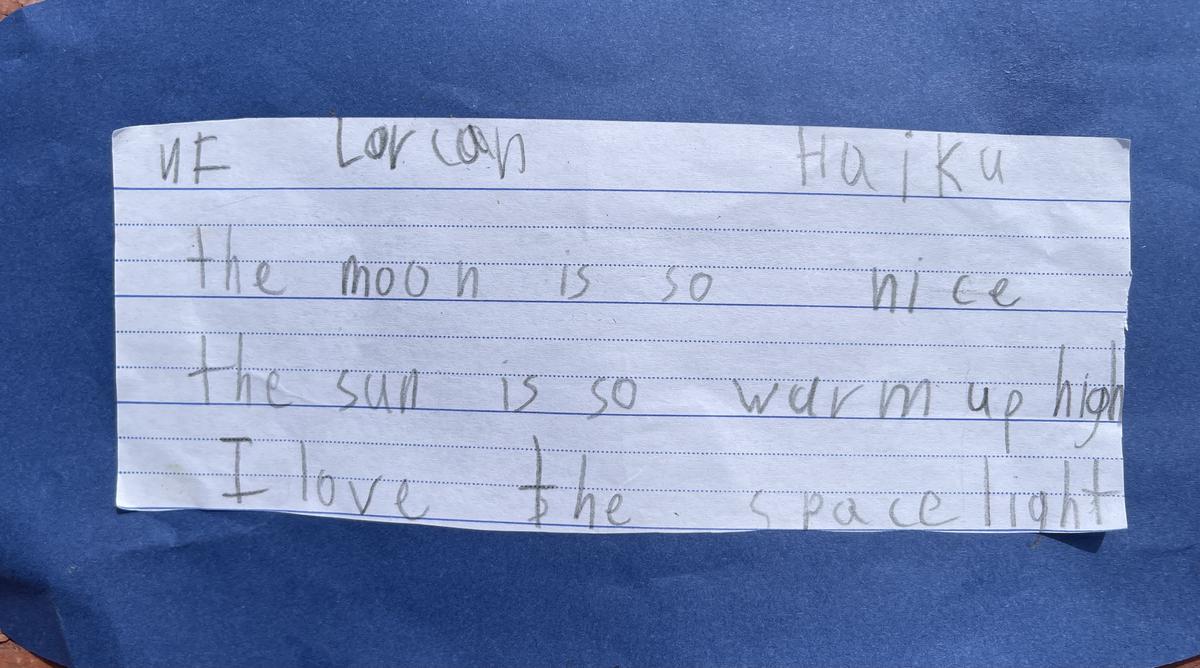 NF Lorcan Haiku
the moon is so nice
the sun is so warm up high
I love the space light